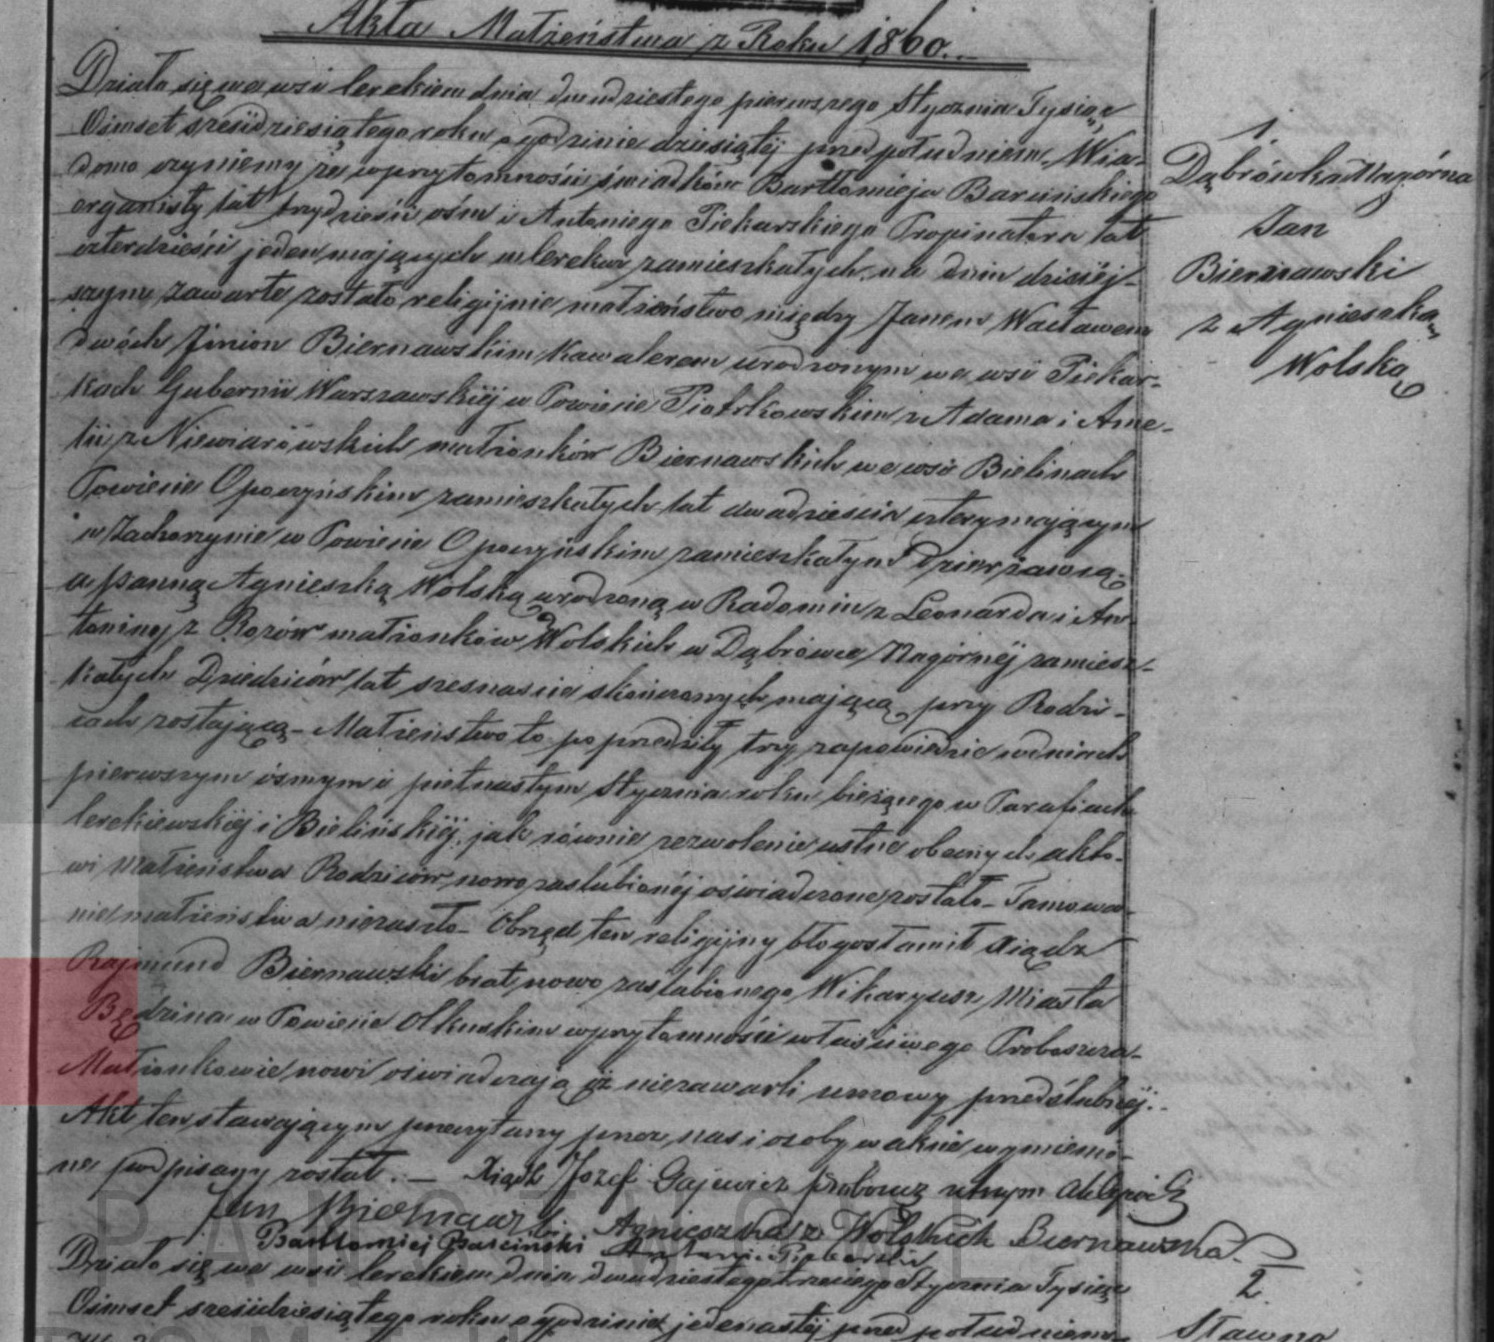 Akta Małżeństwa z Roku 1860.
Działo się we wsi Cerekiem dnia dwudziestego pierwszego Stycznia Tysiąc
Ośmset sześćdziesiątego roku o godzinie dziesiątej przed południem. Wia-
domo czyniemy że w przytomności świadków Bartłomieja Barcińskiego
organisty lat trzydzieści ośm i Antoniego Piekarskiego Propinatora lat
czterdzieści jeden mających w Cerekwi zamieszkałych, na dniu dzisiej-
szym zawarte zostało religijnie małżeństwo między Janem Wacławem
dwóch Imion Biernawskim Kawalerem urodzonym we wsi Piekar-
kach Gubernii Warszawskiéj w Powiecie Piotrkowskim z Adama i Ame-
lii z Niewiarówskich małżonków Biernawskich we wsi Bielinach
Powiecie Opoczyńskim zamieszkałych lat dwadzieścia cztery mającym
w Zachorzynie w Powiecie Opoczyńskim zamieszkałym Dzierżawcą;
a panną Agnieszką Wolską urodzoną w Radomiu z Leonarda i An-
toniny z małżonków Wolskich w Dąbrówce Nagórnéj zamiesz-
kałych Dziedziców lat szesnaście skończonych mającą, przy Rodzi-
cach zostającą - Małżeństwo to poprzedziły trzy zapowiedzie w dniach
pierwszym ósmym i piętnastym Stycznia roku bieżącego w Parafiach
Cerekiewskiéj i Bielińskiéj, jak równie zezwolenie ustne obecnych akto-
wi małżeństwa Rodziców nowo zaślubionéj oświadczone zostało - Tamowa-
nie małżeństwa nie zaszło - Obrzęd ten religijny błogosławił Xiądz
Rajmund Biernawski brat nowo zaślubionego Wikaryusz Miasta
Będzina w Powiecie Olkuskim w przytomności właściwego Proboszcza -
Małżonkowie nowi oświadczają iż nie zawarli umowy przedślubnéj. -
Akt ten stawającym przeczytany przez nas i osoby w akcie wymienio-
ne podpisany został. - Xiądz Józef Gajewicz Proboszcz
Jan Biernawski Agnieszka z Wolskich Biernawska
Bartłomiej Barciński Antoni Piekarski
Działo się we wsi Cerekiem dnia dwudziestego trzeciego Stycznia Tysiąc
Ośmset sześćdziesiątego roku o godzinie jedenastéj przed południem
1
Dąbrówka Nagórna
Jan
Biernawski
z Agnieszką
Wolską
2
Sławna